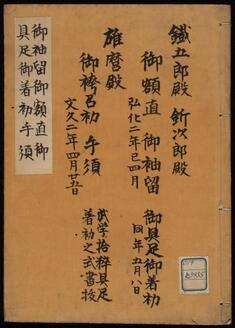 鐵五郎殿 釿次郎殿
御額直 御袖留
弘化二年巳四月
御具足御着初
同年五月八日
雄麿殿
御袴召初 手須
文久二年四月廿五日
武学拾粹具足
着初之式書抜
御袖留御額直御
具足御着初手須